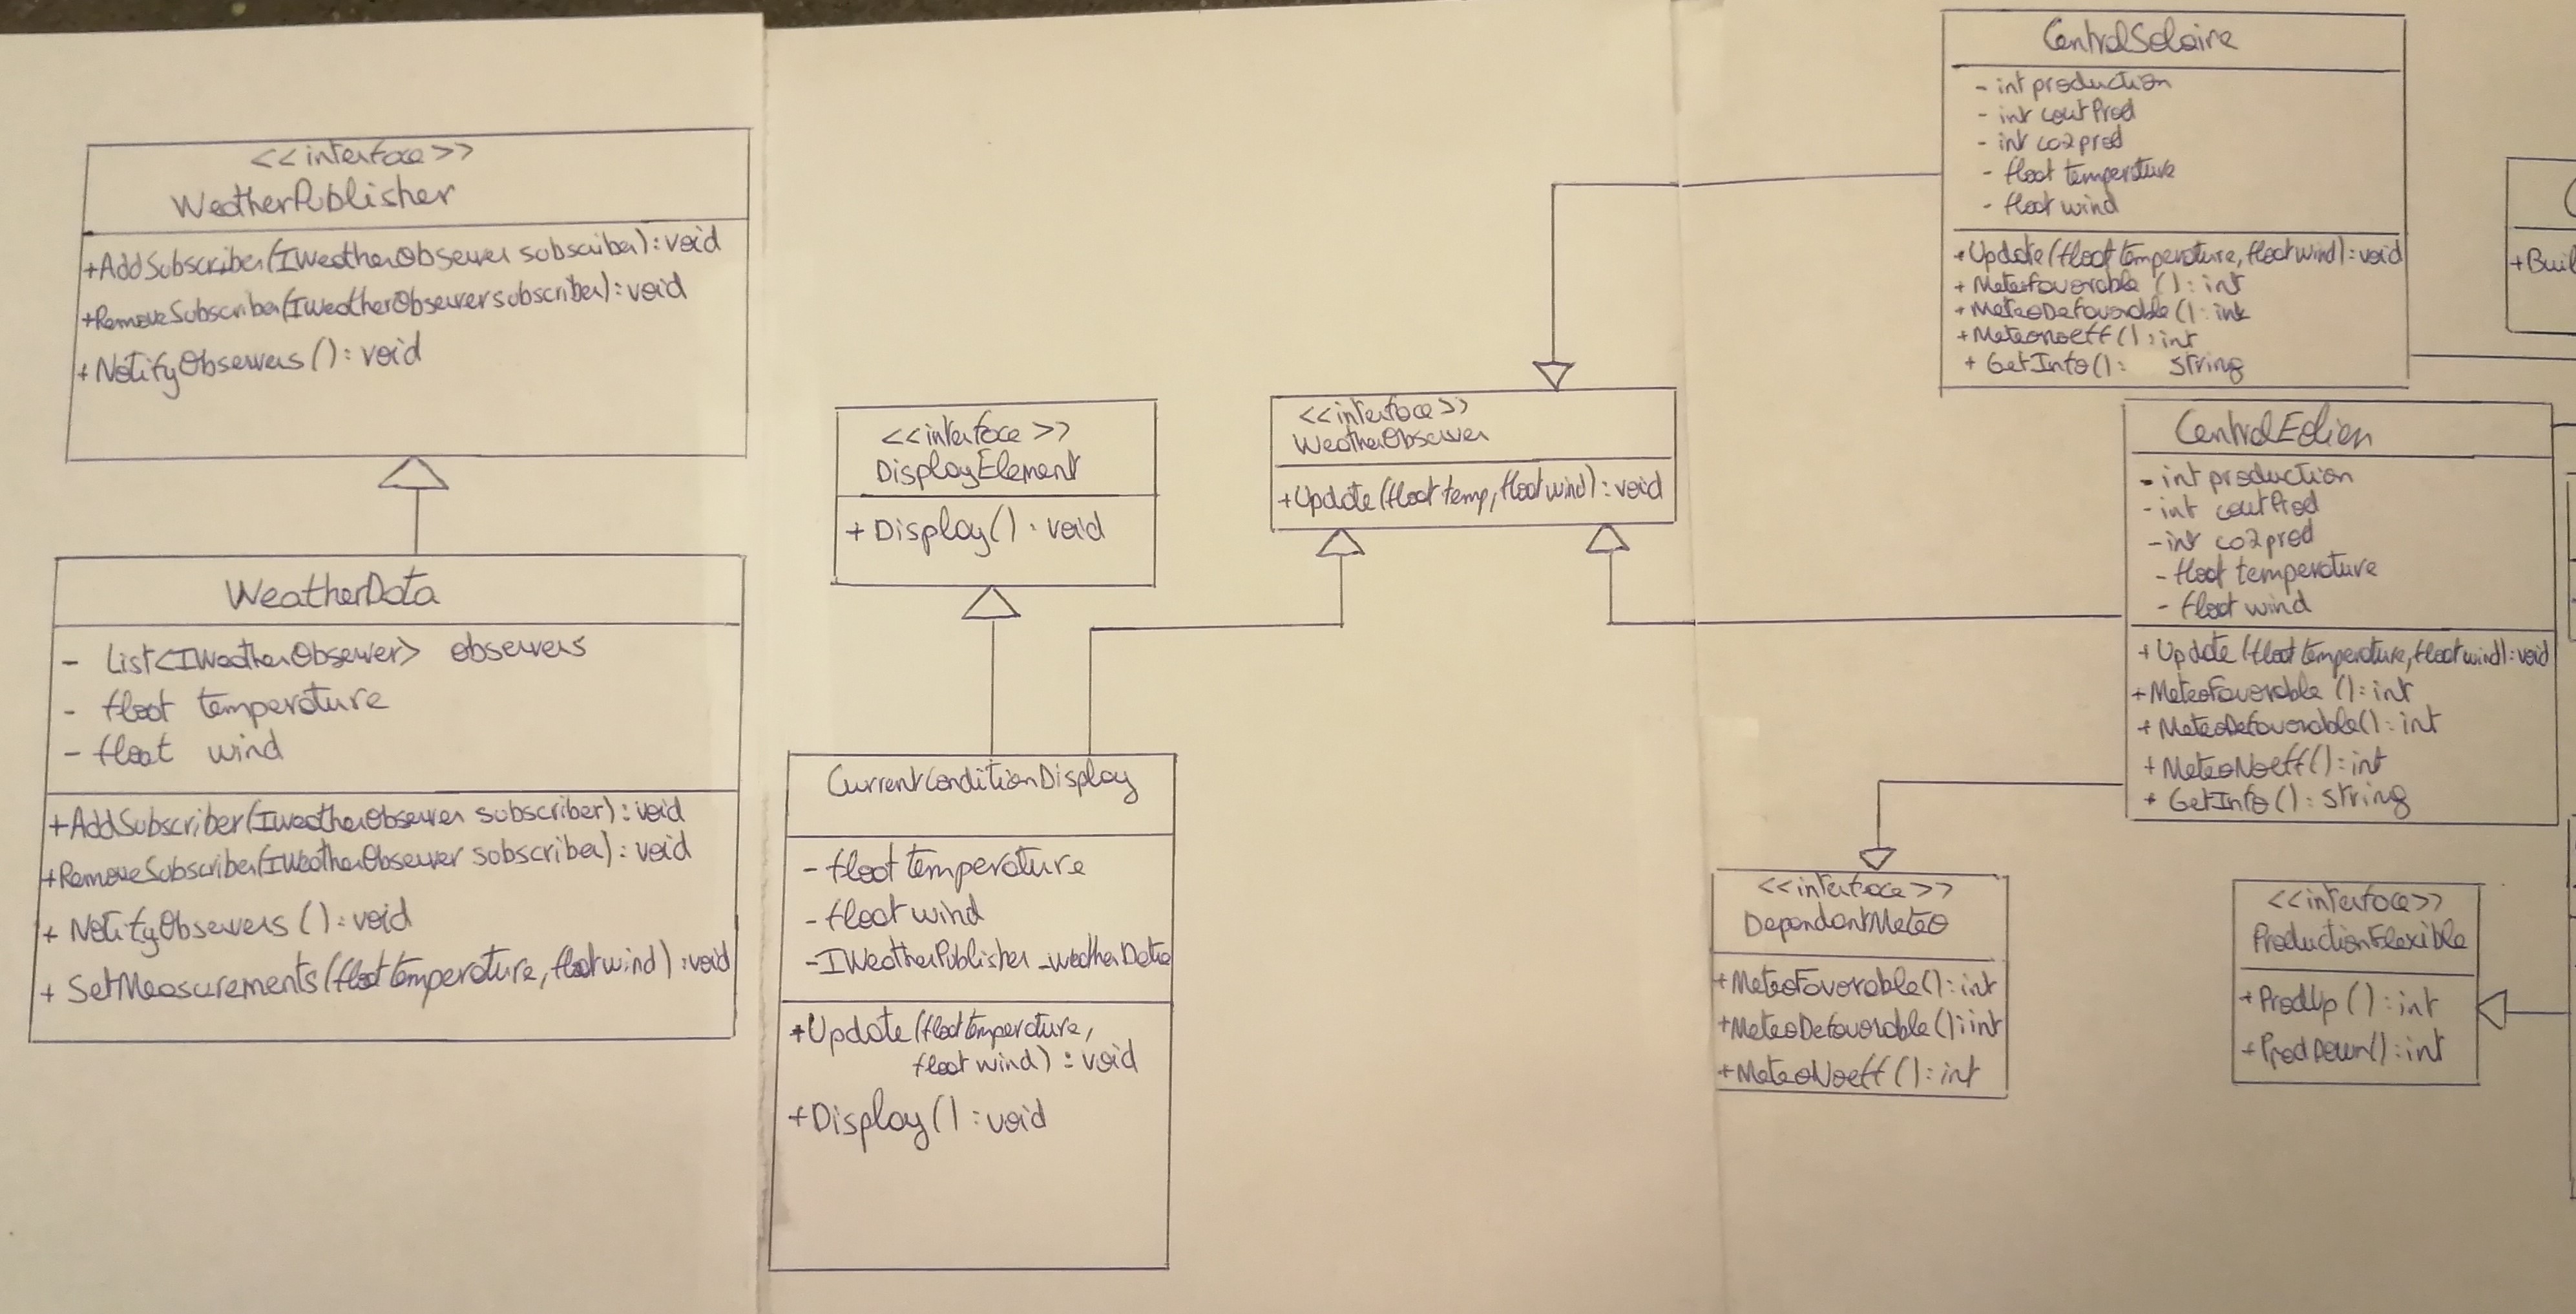 <<interface>>
WeatherPublisher
+AddSubscriber(IWeatherObserver subscriber): void
+RemoveSubscriber(IWeatherObserver subscriber): void
+NotifyObservers(): void
WeatherData
- List<IWeatherObserver> observers
- float temperature
- float wind
+AddSubscriber(IWeatherObserver subscriber): void
+RemoveSubscriber(IWeatherObserver subscriber): void
+ NotifyObservers(): void
+ SetMeasurements(float temperature, float wind): void
<<interface>>
DisplayElement
+ Display(): void
CurrentConditionDisplay
- float temperature
- float wind
- IWeatherPublisher _weatherData
+Update(float temperature,
float wind): void
+Display(): void
<<interface>>
WeatherObserver
+Update(float temp, float wind): void
CentralSolaire
- int production
- int coutProd
- int co2prod
- float temperature
- float wind
+Update(float temperature, float wind): void
+ MeteoFavorable(): int
+MeteoDefavorable(): int
+MeteoNoeff(): int
+ GetInfo(): string
CentralEolien
- int production
- int coutProd
- int co2prod
- float temperature
- float wind
+Update(float temperature, float wind): void
+MeteoFavorable(): int
+ MeteoDefavorable(): int
+ MeteoNoeff(): int
+ GetInfo(): string
<<interface>>
DependantMeteo
+MeteoFavorable(): int
+MeteoDefavorable(): int
+MeteoNoeff(): int
<<interface>>
ProductionFlexible
+ProdUp(): int
+ProdDown(): int
+Buil